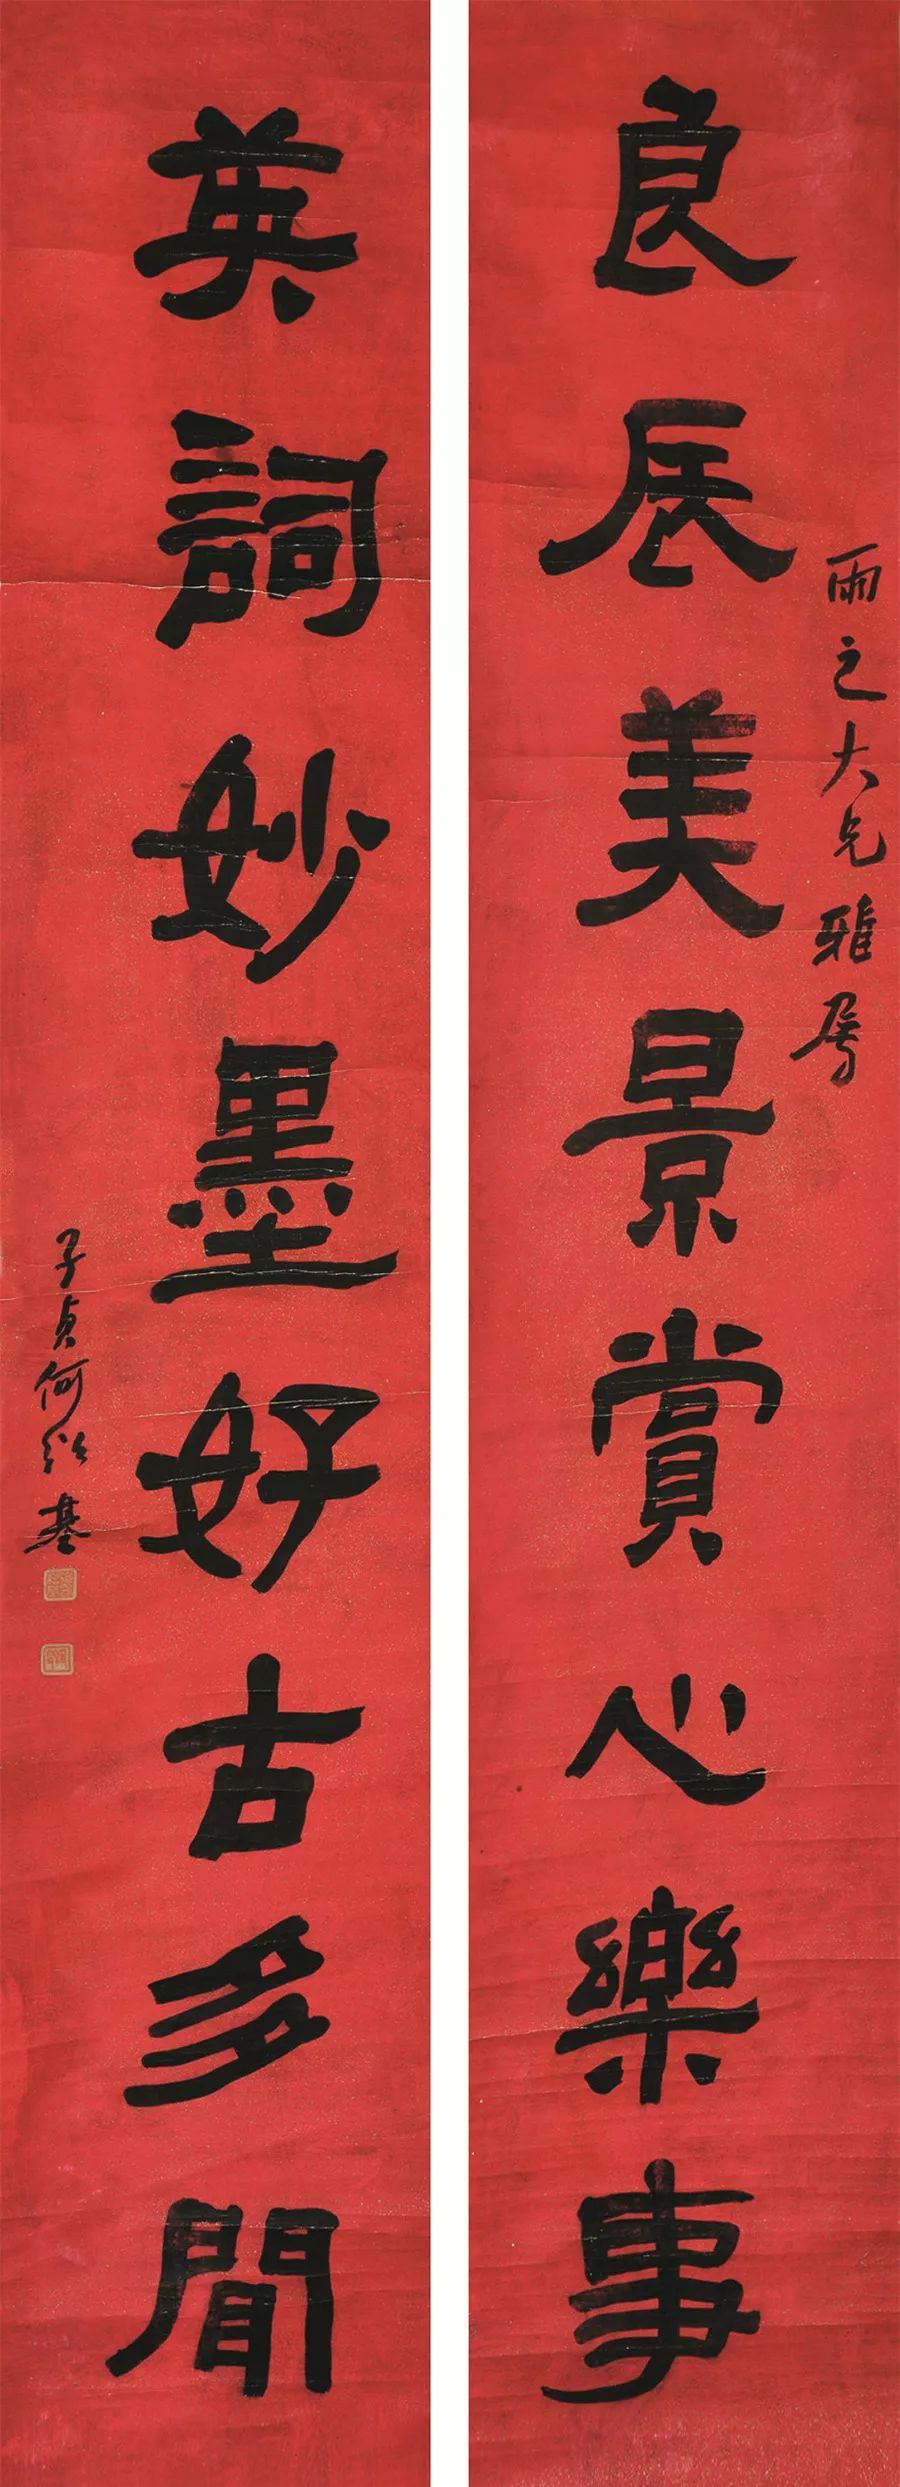 良辰美景賞心樂事
雨之大兄雅属
英詞妙墨好古多聞
子貞何紹基